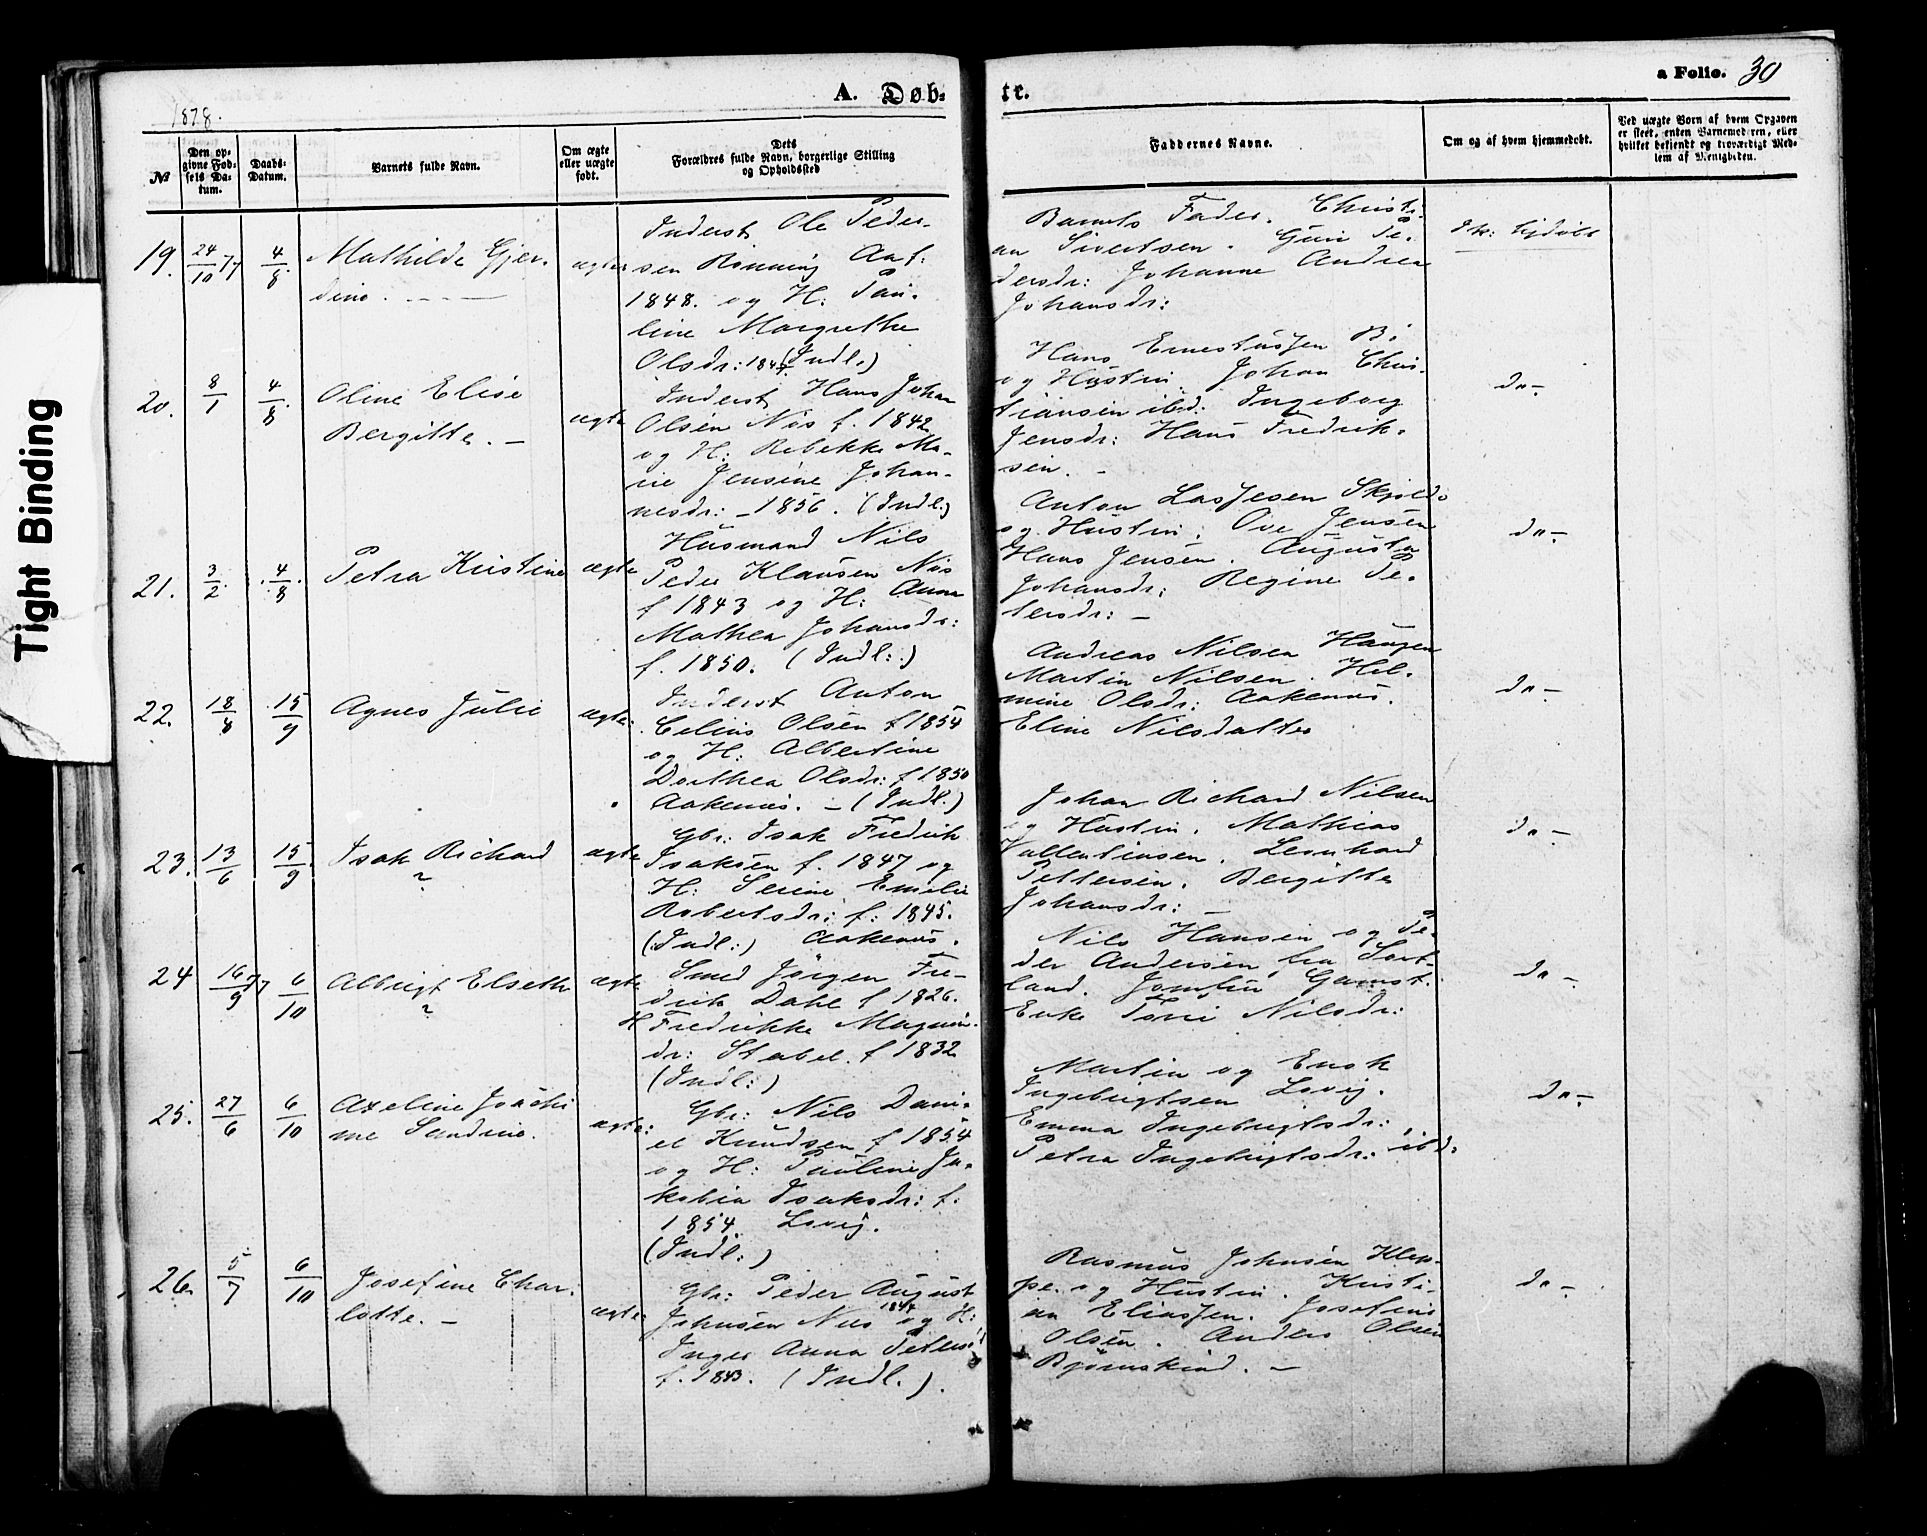 Tight Binding
1878.
A. Døb-
te.
a Folio. 30
№
Den op-
givne Fød-
sels Da-
tum.
Daabs-
Datum.
Barnets fulde Navn.
Om ægte
eller uægte
født.
Dets
Forældres fulde Navn, borgerlige Stilling
og Opholdssted
Faddernes Navne.
Om og af hvem hjemmedøbt.
Ved uægte Børn af hvem Opgaven
er skeet, enten Barnemoderen, eller
hvilket bekjendt og troværdigt Med-
lem af Menigheden.
19. 24/10 77 4/8.
Mathilde Gjer-
dine.
ægte
Inderst Ole Peder-
sen Rønning Aaf:
1848. og H: Pau-
line Margrethe
Olsdr: (Indl.)
Barnets Fader. Christi-
an Sivertsen. Guri Pe-
dersdr: Johanne Andrea
Johansdr:
20. 8/1 4/8.
Oline Elise
Bergitte. –
ægte
Inderst Hans Johan
Olsen Næs f. 1842
og H: Rebekka Ma-
rie Jensine Johan-
nesdr: – 1856. (Indl.)
Hans Ernestussen B.
og Hustru. Johan Chris-
tiansen ibd: Ingeborg
Jensdr: Hans Fredrik-
sen. –
do –
21. 3/2. 4/8.
Petra Kristine
ægte
Husmand Nils
Peder Klausen Næs
f 1843 og H: Anna
Mathea Johansdr:
f. 1850. (Indl:)
Anton Lassesen Skjold
og Hustru. Ove Jensen
Hans Jensen. Augusta
Johansdr: Regine Pe-
tersdr: –
do –
22. 18/8 15/9
Agnes Julie
ægte:
Inderst Anton
Celius Olsen f 1854
og H: Albertine
Dorthea Olsdr: f 1850
Aakenæs. – (Indl.)
Andreas Nilsen Haugen
Martin Nilsen. Hel-
mine Olsdr: Aakenæs.
Eline Nilsdatter
do –
23. 13/6 15/9
Isak Richard
ægte
Gbr: Isak Fredrik
Isaksen f. 1847 og
H: Serine Emelie
Robertsdr: f: 1845.
(Indl:) Aakenæs.
Johan Richard Nilsen
og Hustru. Mathias
Vallentinsen. Leonhard
Pettersen. Bergitte
Johansdr: –
do –
24 16/9 77 6/10
Albrigt Elseth
ægte
Smed Jørgen Fre-
drik Dahl f 1826.
H Fredrikke Magnus-
dr: Stabel. f 1832
(Indl:)
Nils Hansen og Pe-
der Andersen fra Sort-
land. Jomfru Gamst.
Enke Torri Nilsdr:
do –
25. 27/6 6/10
Axeline Joachi
me Sandrine.
ægte:
Gbr: Nils Dani-
el Knudsen f 1854
og H: Pauline Ja-
kobia Isaksdr: f.
1854. Lovig.
(Indl:)
Martin og Enok
Ingebrigtsen Lovig.
Emma Ingebrigtsdr:
Petra Ingebrigtsdr: ibd:
do –
26. 5/7 6/10
Josefine Char-
lotte. –
ægte
Gbr: Peder August
Johnsen Næs og H:
Inger Anna
f. 1843. (Indl.).
Rasmus Johnsen Klep-
pe. og Hustru. Kristi-
an Eliassen. Josefine
Olsen. Anders Olsen
Bjørnskind. –
do –